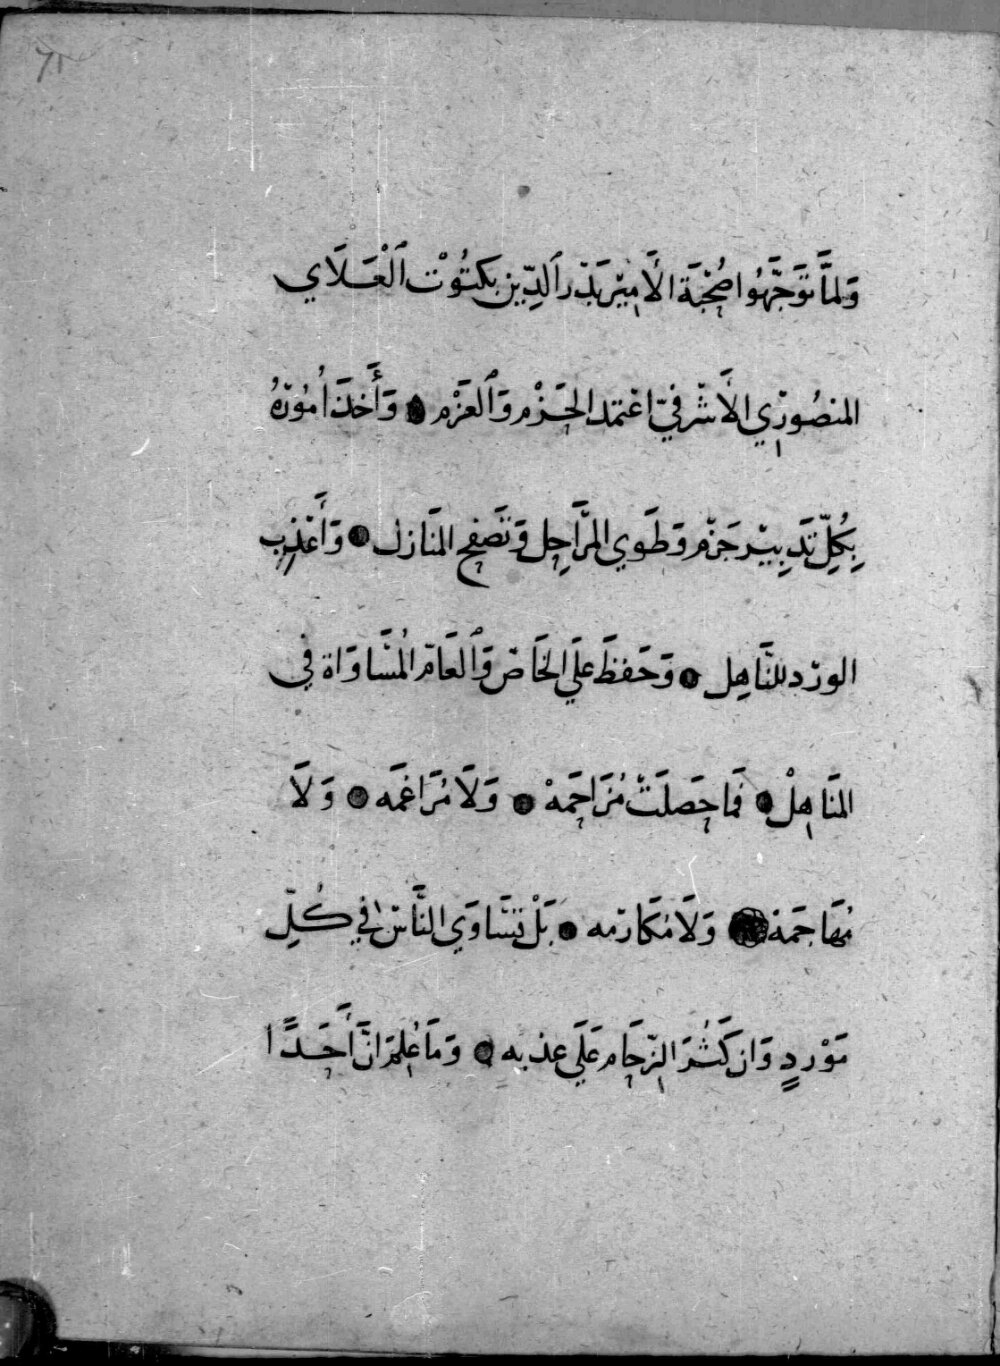 ٧١
وَلمَّا تَوَجَّهُوا صُحْبَةَ الأَمِيْر بَدْر ٱلدِّين بَكتُوْت ٱلْعَلَاي
المنصُورِي الأَشْرفيّ اعْتمَد الحَزْم وَٱلعَزْم ۞ وَأَخَذَ اُمُوْرَهُ
بِكُلِّ تَدبِيْر جَزْم وَطَوي المرَاحِل وَتَصَفح المنَازل ۞ وَأَعْذب
الورْد للنَّاهِل ۞ وَحَفظَ علَي الخَاصّ وَٱلعَامّ المُسَاوَاة في
المنَاهِلْ ۞ فَمَا حَصلَتْ مُزَاحَمَهْ ۞ وَلَا مُرَاغمَه ۞ وَلَا
مُهَاجَمَة ۞ وَلَا مُكَارمه ۞ بَلْ تسَاوَي النَّاسُ في كُلِّ
مَوْردٍ وَان كَثُرَ الزّحَام عَلَي عذبه ۞ وَمَا عُلِمَ انَّ أَحَدًا